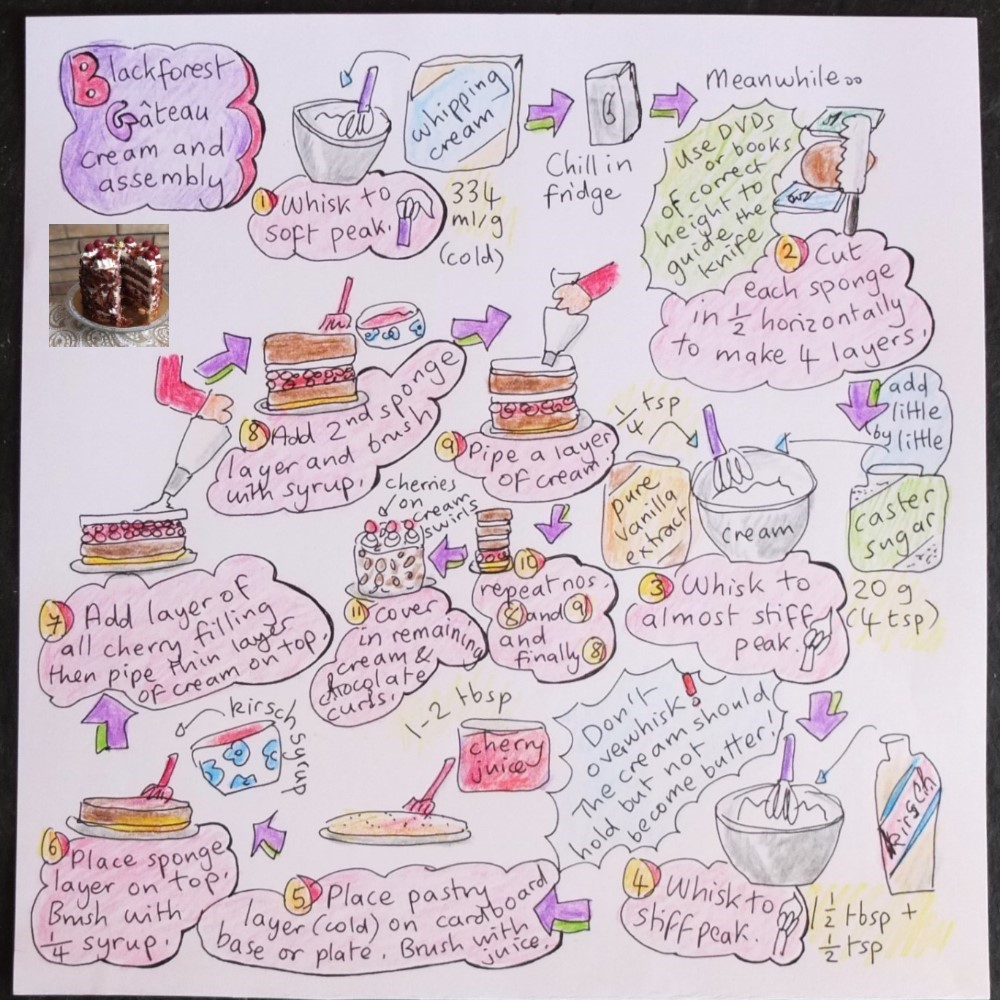 Blackforest
Gâteau
cream and
assembly
whipping
cream
1 Whisk to
soft peak.
334
ml/g
(cold)
Chill in
fridge
Meanwhile
Use DVDs
or books
of correct
height to
guide the
knife
DVD
2 Cut
each sponge
in 1/2 horizontally
to make 4 layers.
add
little
by little
1/4 tsp
pure
vanilla
extract
cream
caster
sugar
3 Whisk to
almost stiff
peak.
20 g
(4 tsp)
Don't
overwhisk!
The cream should
hold but not
become butter!
kirsch
4 Whisk to
stiff peak.
1 1/2 tbsp +
1/2 tsp
1-2 tbsp
cherry
juice
5 Place pastry
layer (cold) on cardboard
base or plate. Brush with
juice.
kirsch syrup
6 Place sponge
layer on top.
Brush with
1/4 syrup.
7 Add layer of
all cherry filling
then pipe thin layer
of cream on top.
8 Add 2nd sponge
layer and brush
with syrup.
9 Pipe a layer
of cream
10
repeat nos.
8 and 9
and
finally 8
cherries
on cream
swirls
11 Cover
in remaining
cream &
chocolate
curls.